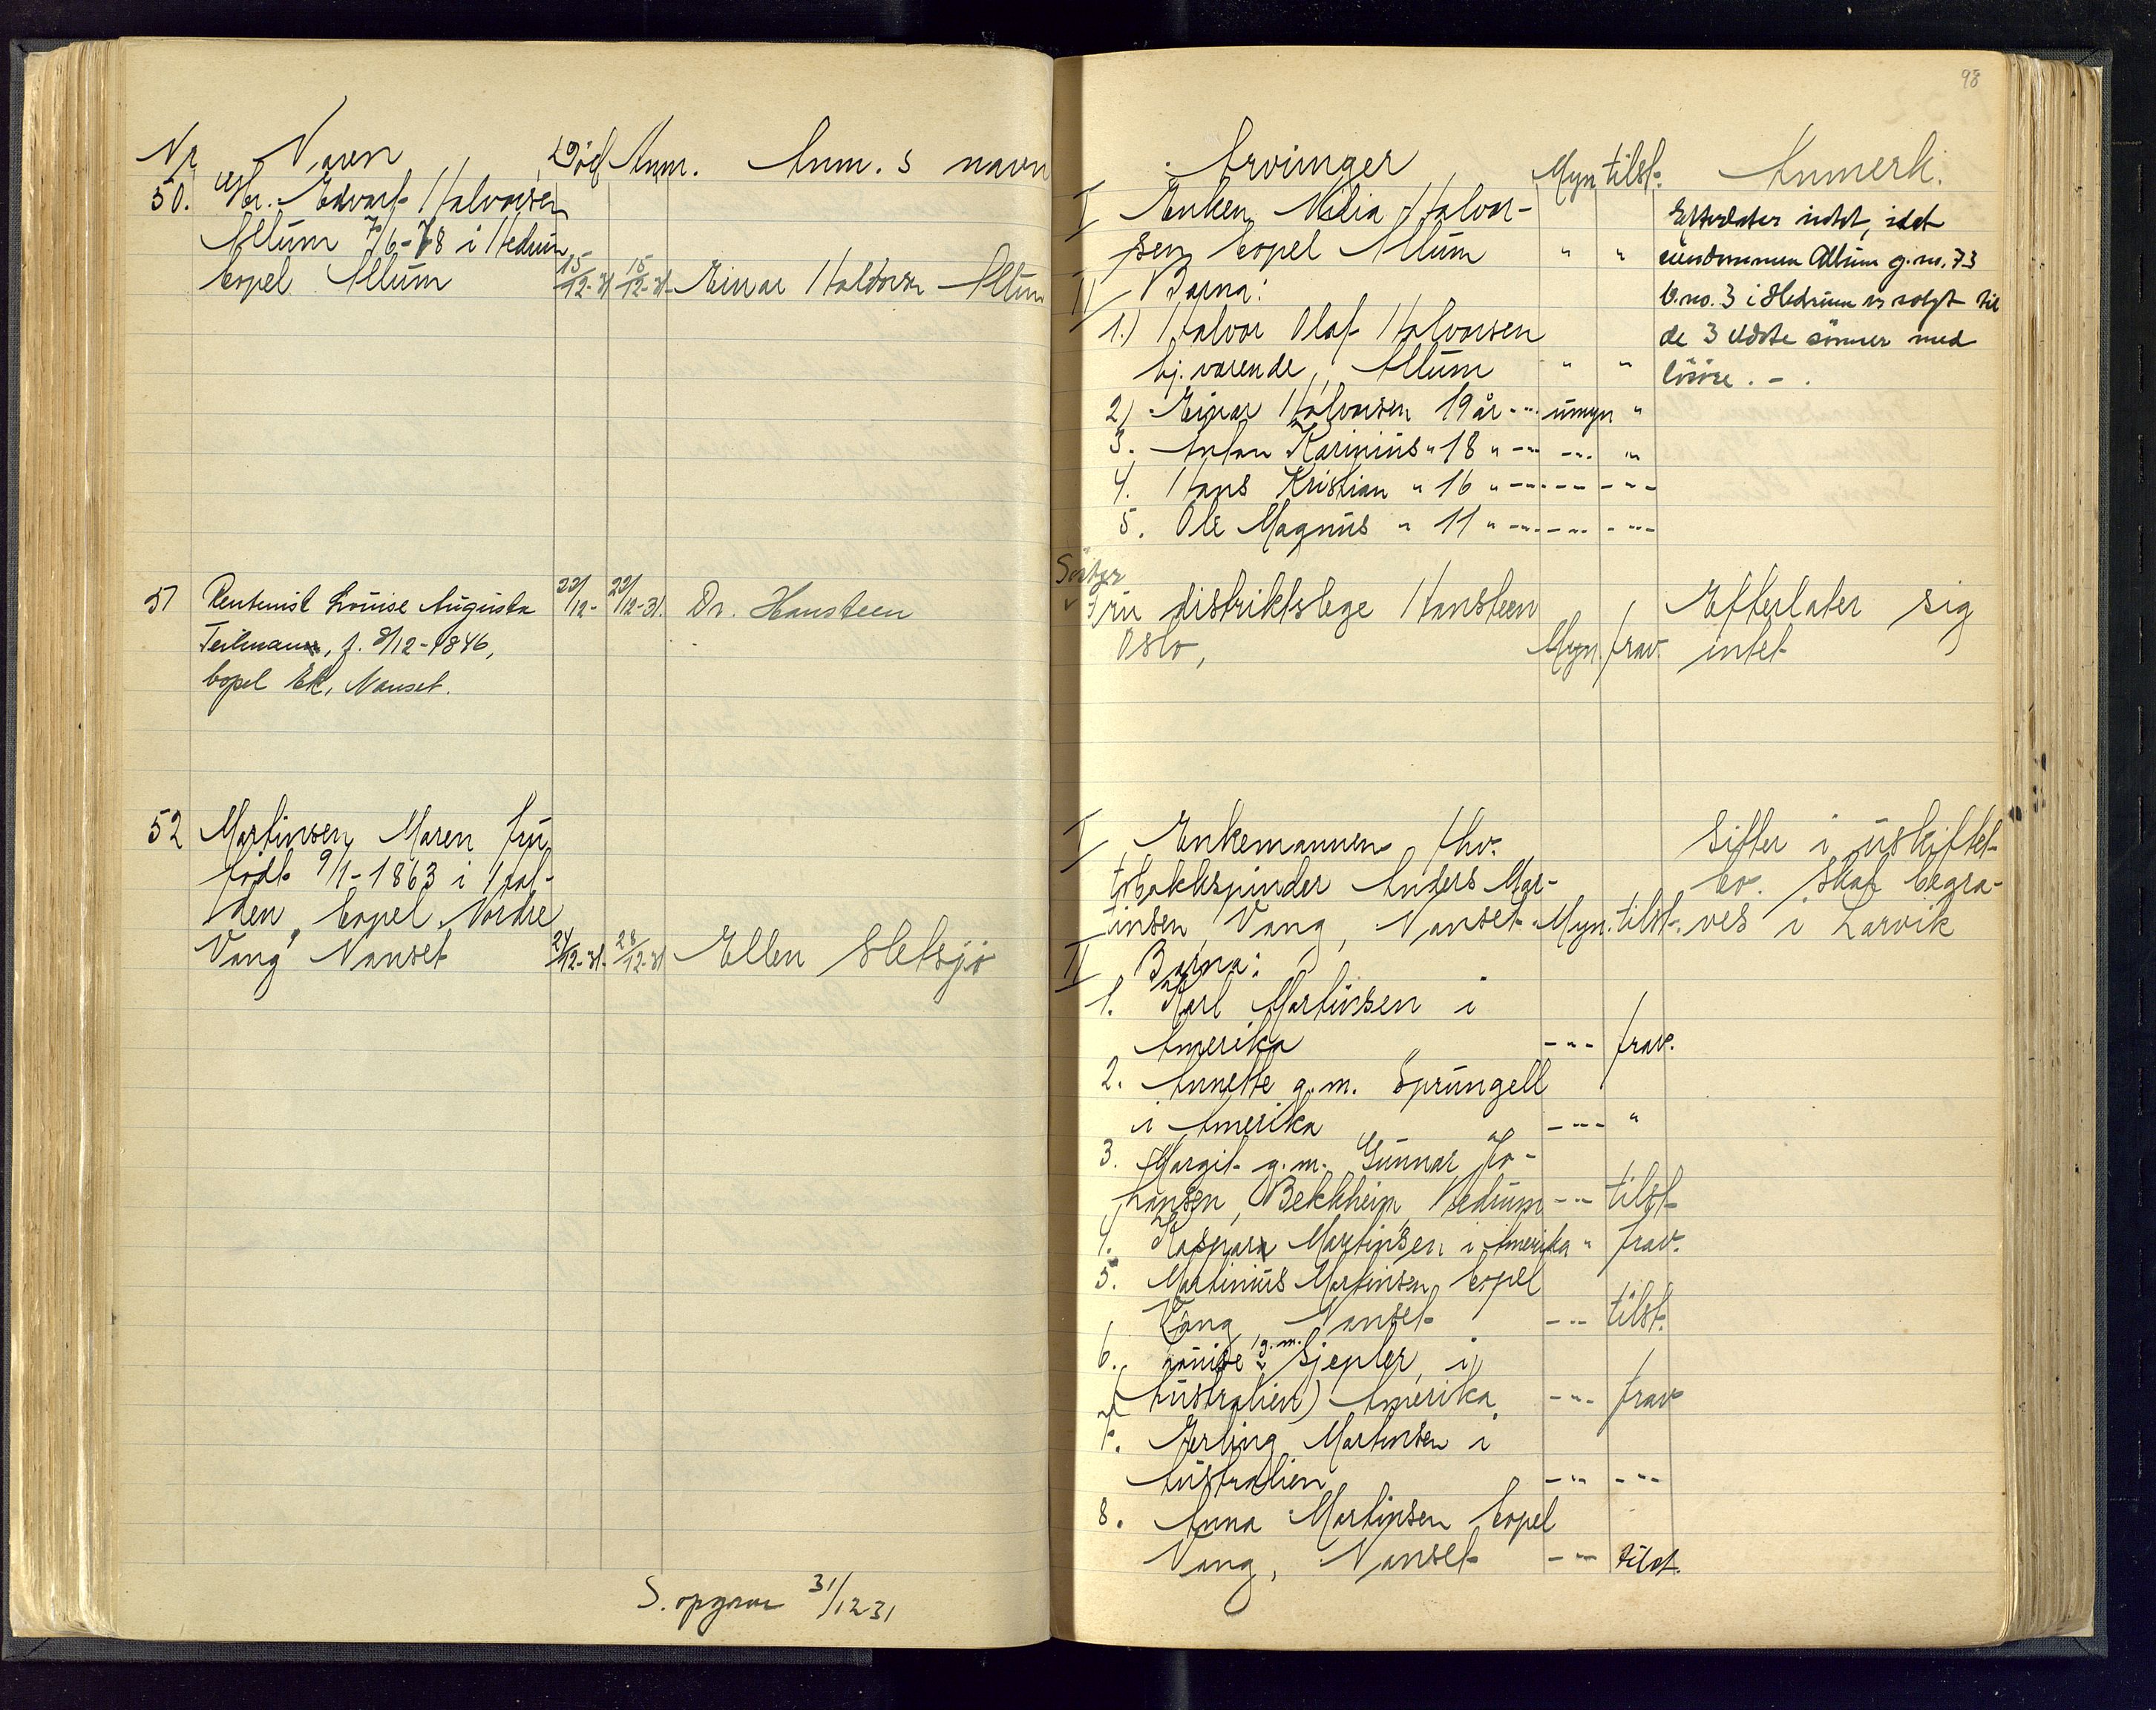 Nr Navn Død Anm. Anm.s navn
50. Gbr. Edvart Halvorsen
Allum 7/6-78 i Hedrum
bopel Allum 15/12-31 15/12-31 Einar Halvorsen Allum
51 Rentenist Louise Augusta 22/12- 22/12-31. Dr. Hansteen
Teilmann, f. 8/12-1846,
bopel Ek, Nanset.
52 Martinsen Maren fru
født 9/1-1863 i Hal-
den, bopel Nordre
Vang Nanset 24/12-31. 28/12-31 Ellen Sletsjø
S. opgave 31/12 31
98
Arvinger Myn tilst. Anmerk.
I Enken Milia Halvor-
sen bopel Allum " "
II Barna:
1.) Halvor Olaf Halvorsen
hj.værende, Allum " "
2) Einar Halvorsen 19 år -"- umyn "
3. Anton Karinius " 18 " -"- -"- "
4. Hans Kristian " 16 " -"- -"- -"-
5. Ole Magnus " 11 " -"- -"- -"-
Efterlater intet, idet
eiendommen Allum g.no. 73
b.no. 3 i Hedrum er solgt til
de 3 eldste sønner med
løsøre. - .
Søster
Fru distriktslege Hansteen
Oslo, Myn. frav.
Efterlater sig
intet
I Enkemannen fhv.
tobakkspinder Anders Mar-
tinsen, Vang, Nanset Myn. tilst.
Sitter i uskiftet
bo. Skal begra-
ves i Larvik
II Barna:
1. Karl Martinsen i
Amerika -"- frav.
2. Annette g.m. Sprungell
i Amerika -"- "
3. Margit g.m. Gunnar Jo-
hansen, Bekkheim Hedrum -"- tilst
4. Kaspara Martinsen i Amerika " frav.
5. Martinius Martinsen bopel
Vang Nanset -"- tilst.
6. Louise g.m. Sjepler, i
(Australien) Amerika -"- frav
7. Erling Martinsen i
Australien -"- -"-
8. Anna Martinsen bopel
Vang, Nanset -"- tilst.